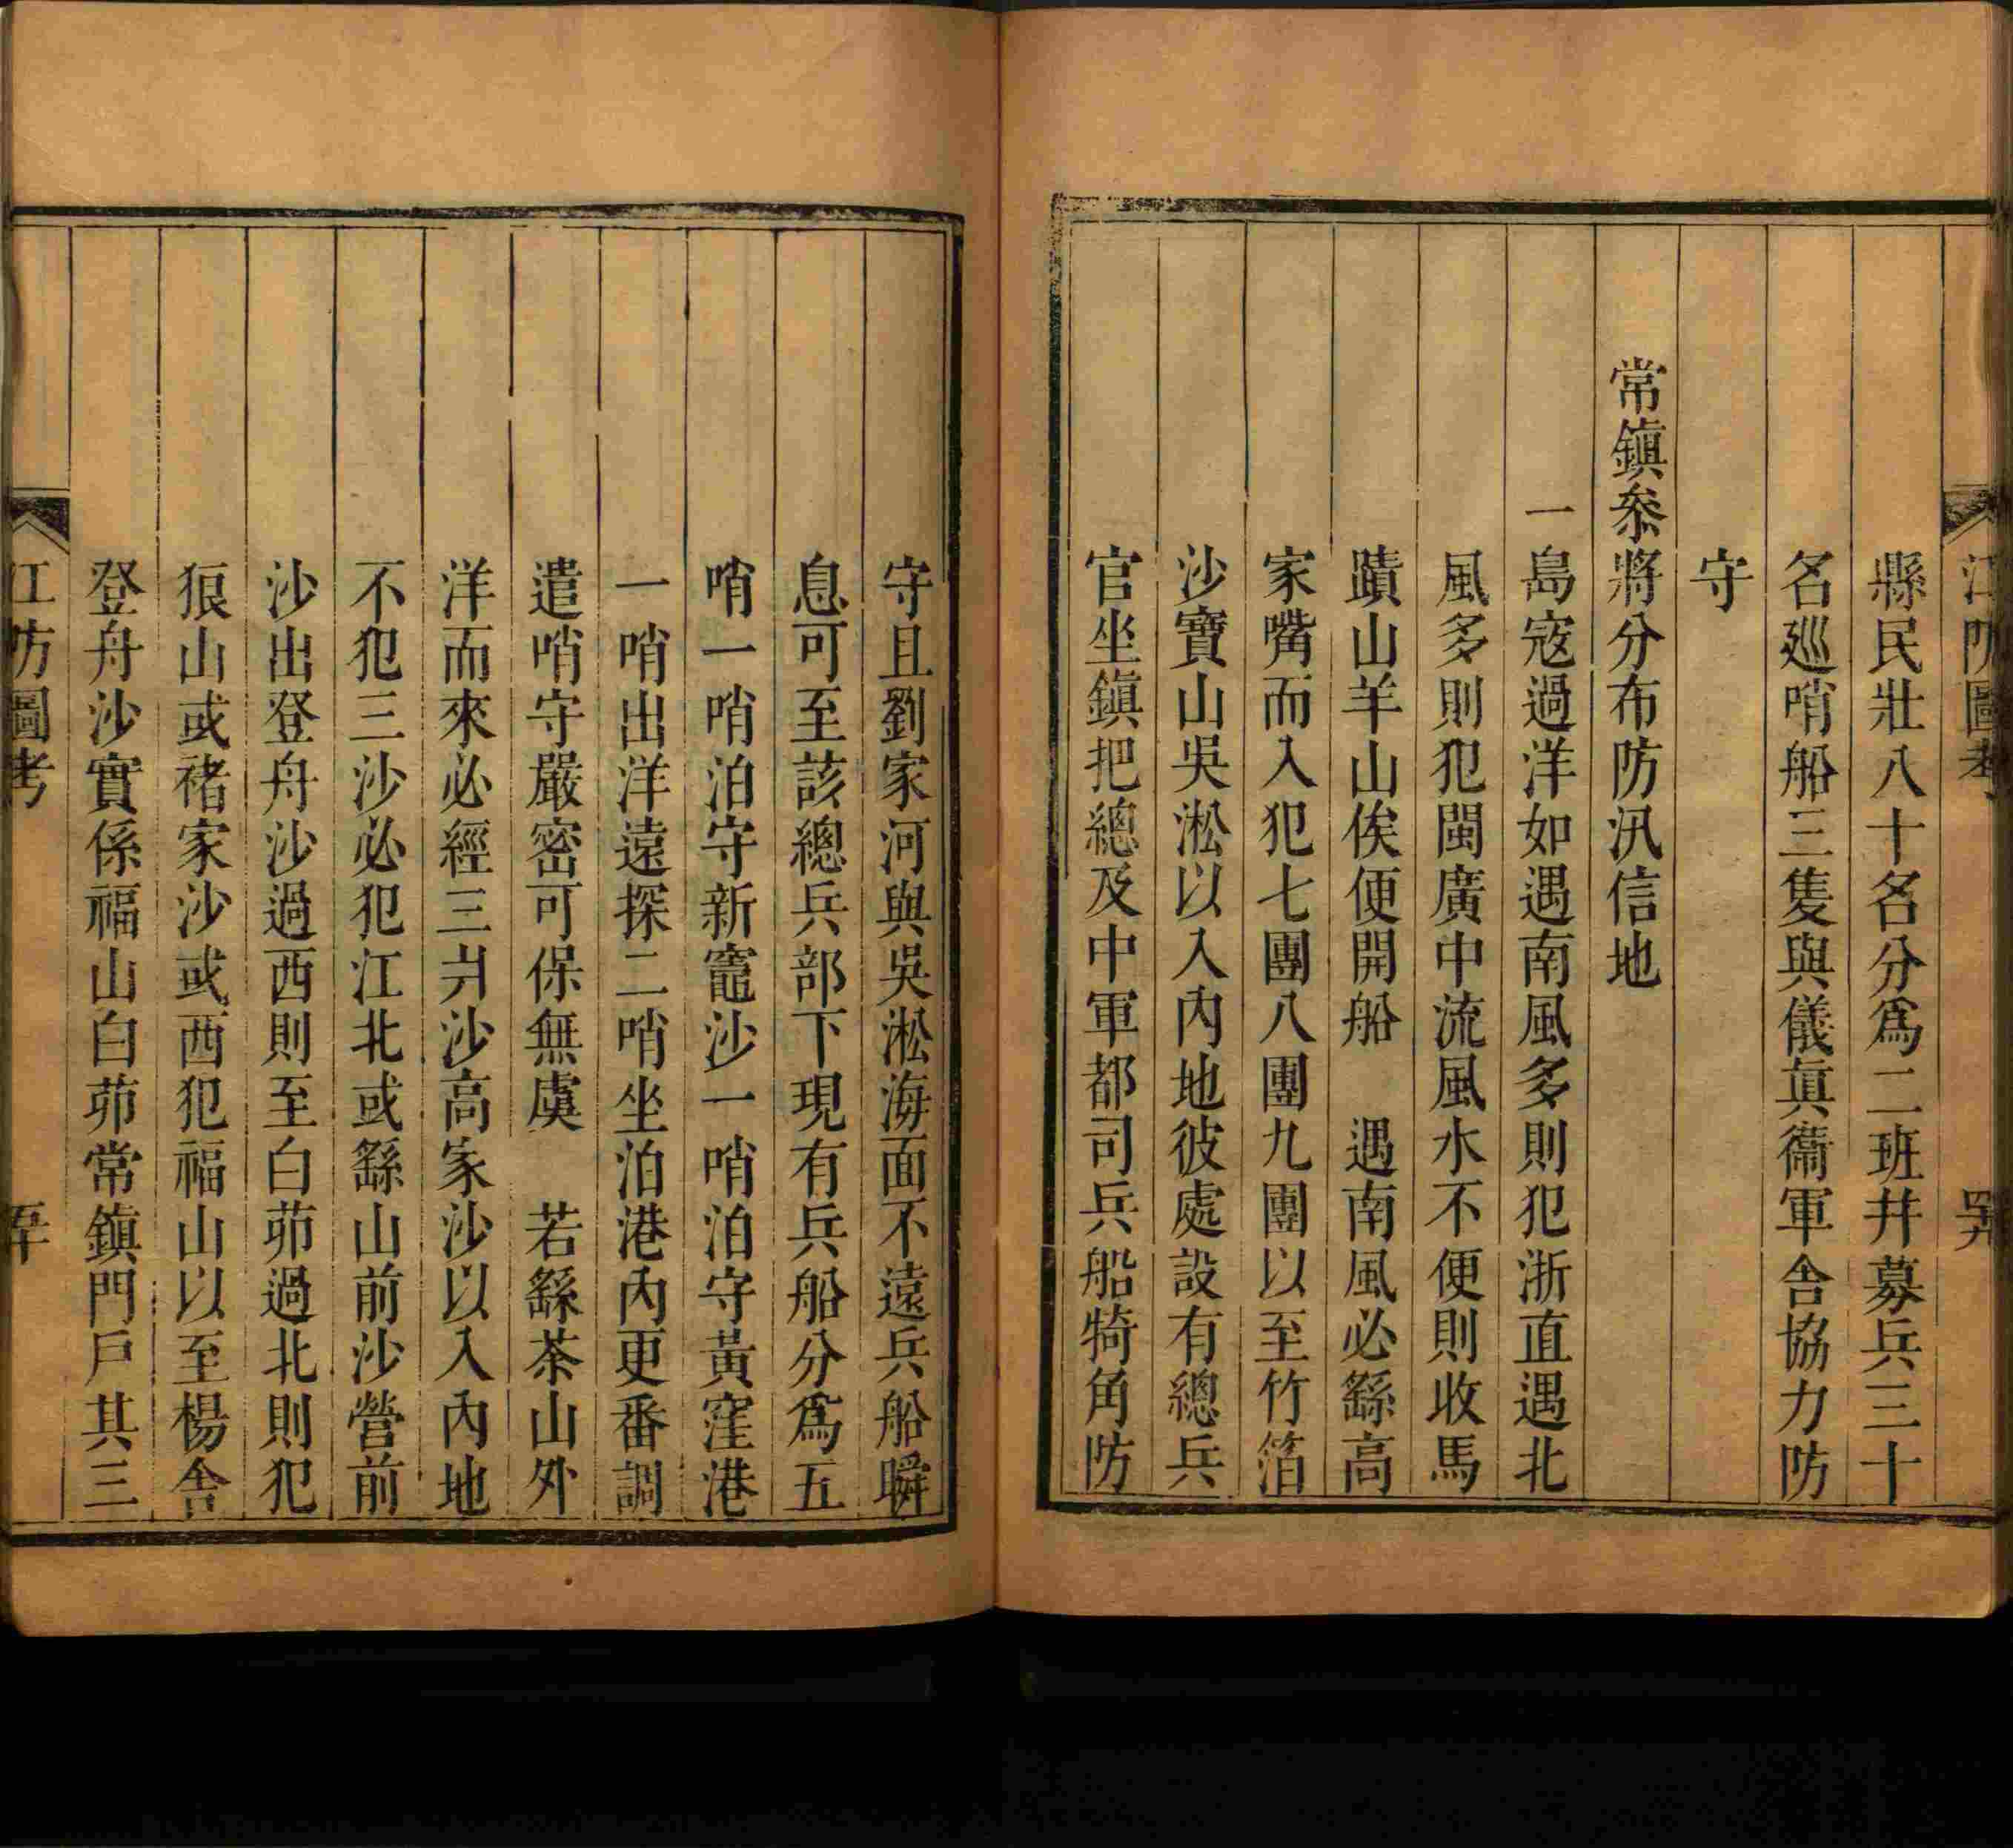 江防圖考
縣民壯八十名分爲二班幷募兵三十
名廵哨船三隻與儀眞衞軍舎協力防
守
常鎭叅將分布防汛信地
一島寇過洋如遇南風多則犯浙直遇北
風多則犯閩廣中流風水不便則收馬
蹟山羊山俟便開船　遇南風必繇高
家嘴而入犯七團八團九團以至竹箔
沙寶山吳淞以入內地彼處設有總兵
官坐鎭把總及中軍都司兵船犄角防
守且劉家河與吳淞海面不遠兵船瞬
息可至該總兵部下現有兵船分爲五
哨一哨泊守新竈沙一哨泊守黃窪港
一哨出洋遠探二哨坐泊港內更番調
遣哨守嚴密可保無虞　若繇茶山外
洋而來必經三爿沙高家沙以入內地
不犯三沙必犯江北或繇山前沙營前
沙出登舟沙過西則至白茆過北則犯
狼山或褚家沙或西犯福山以至楊舎
登舟沙實係福山白茆常鎭門戶其三
江防圖考